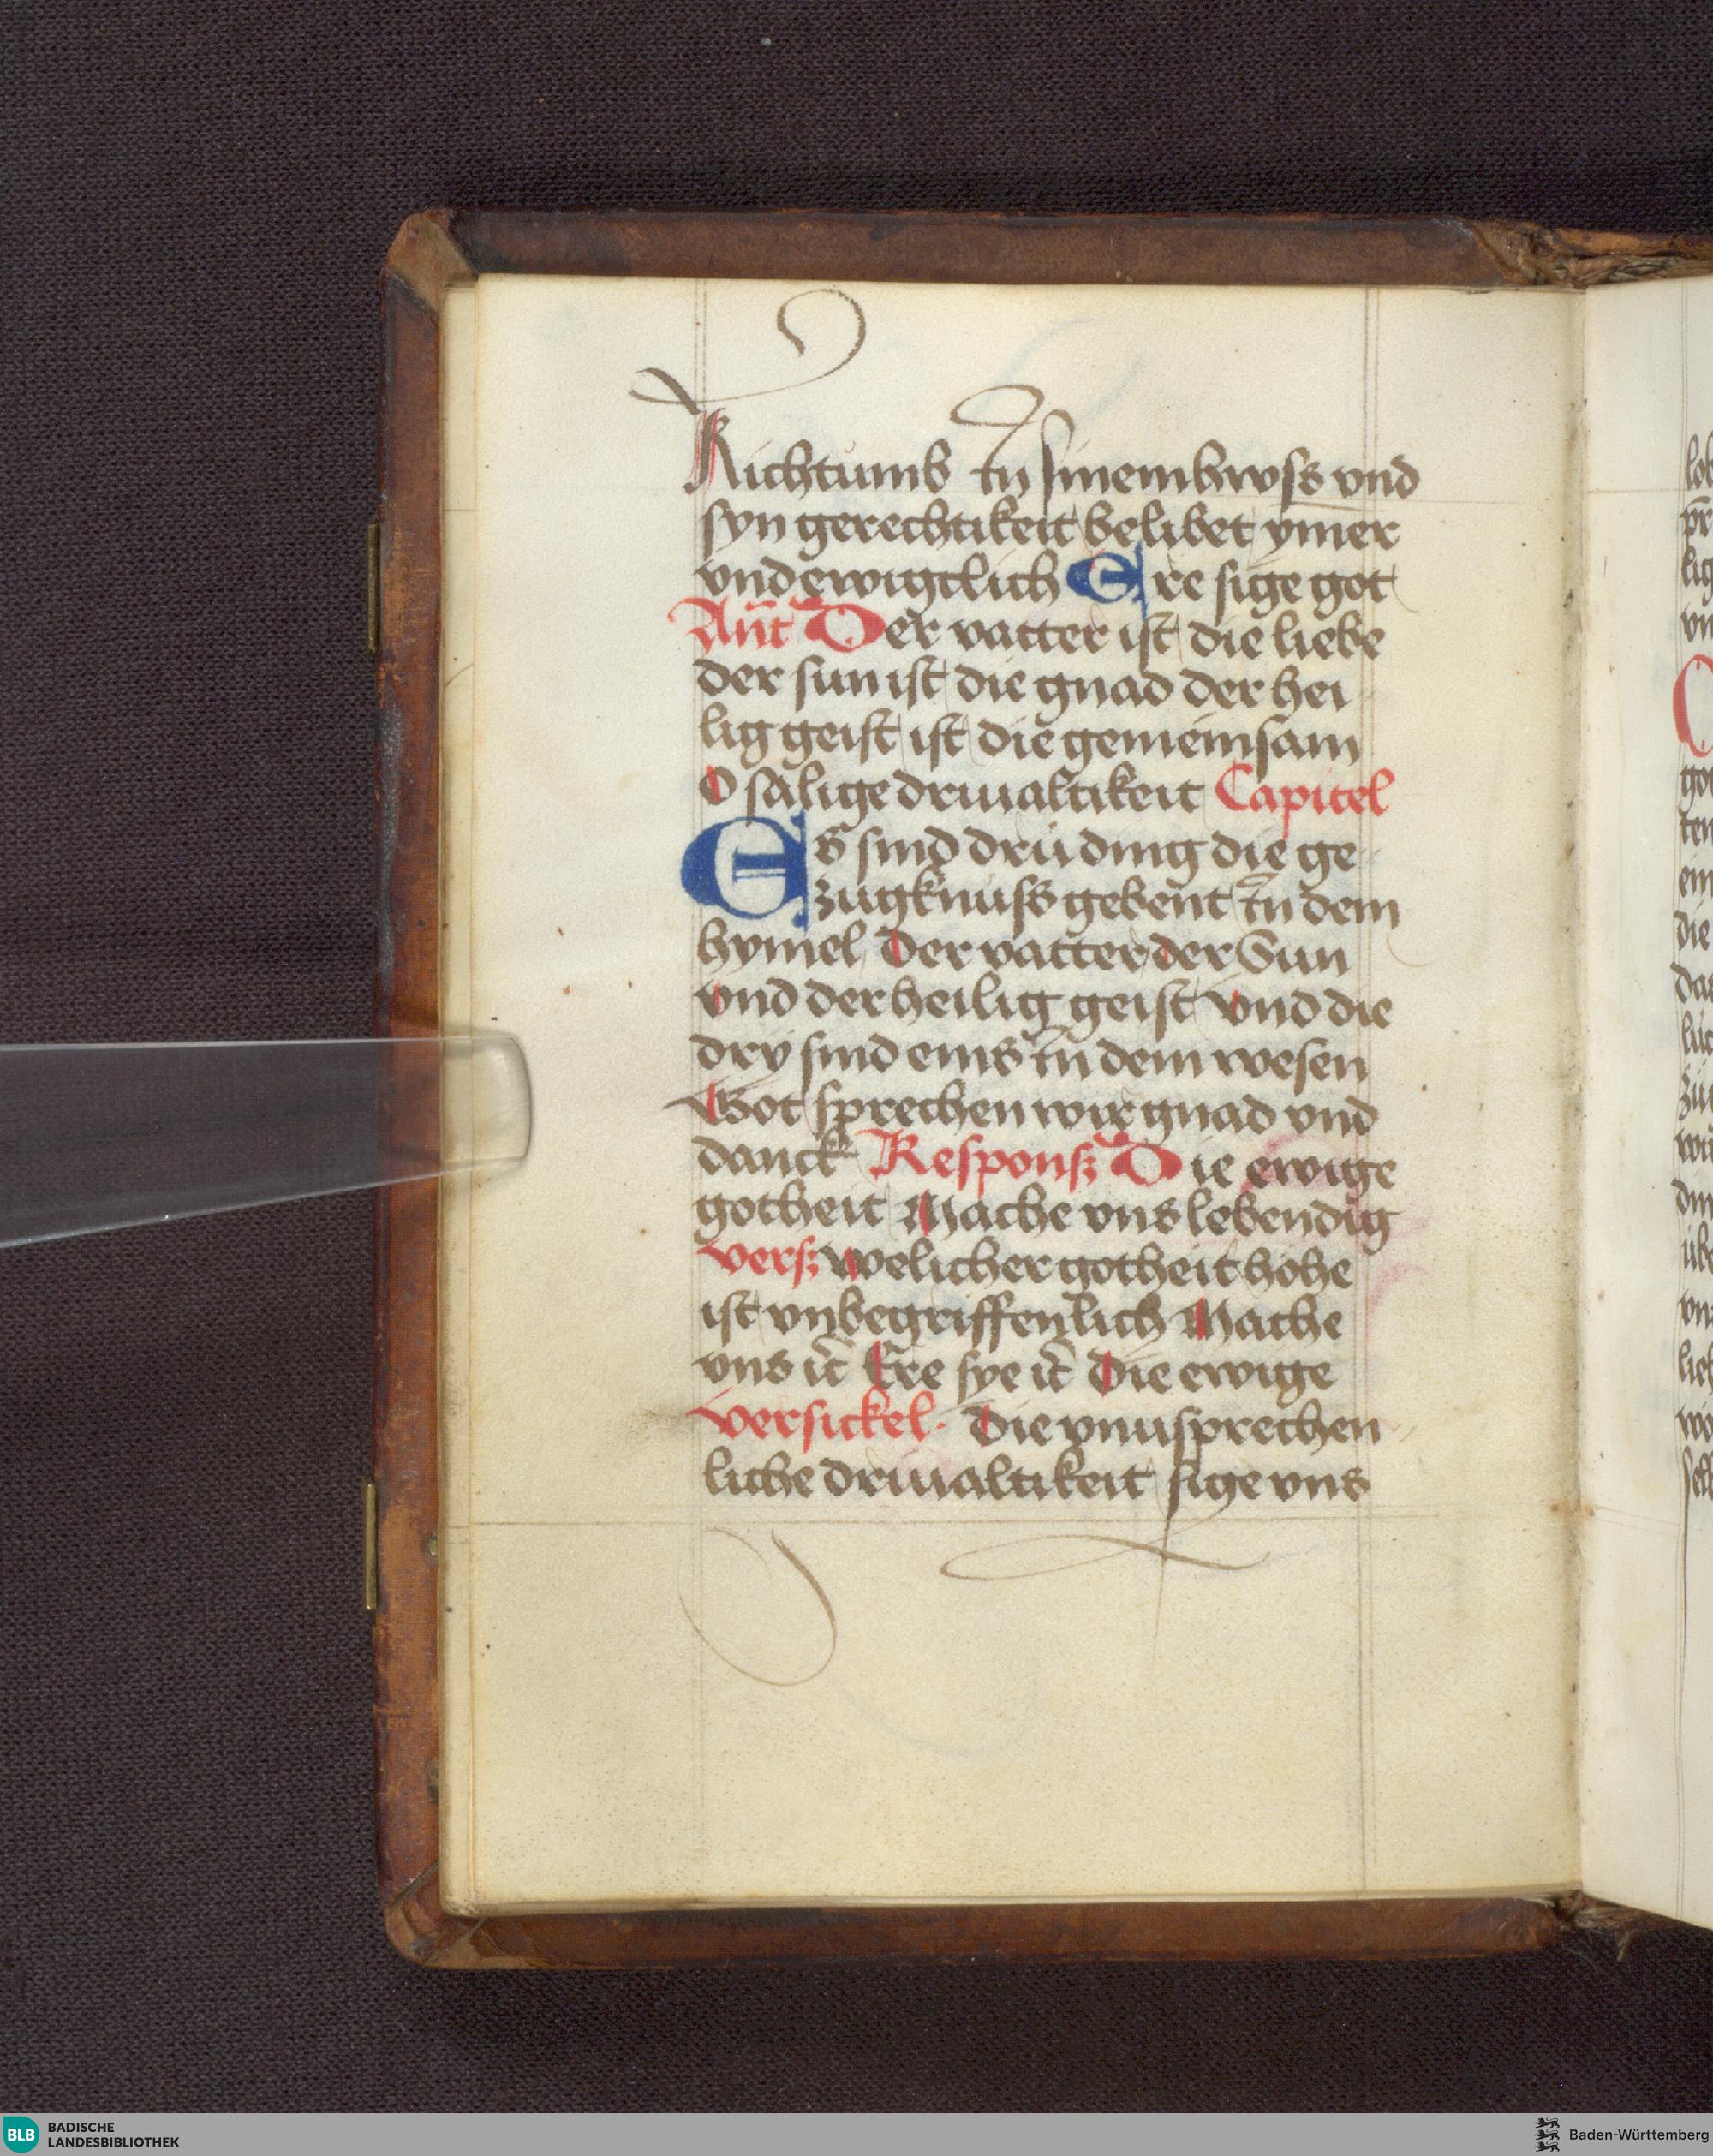 Richtumb in sinem hwss vnd
syn gerechtikeit belibet ymer
vnd ewigclich Ere sige got
Ant Der vatter ist die liebe
der sun ist die gnad der hei
lig geist ist die gemeinsam
O sålige driualtikeit Capitel
Es sind drü ding die ge
zugknuss gebent in dem
hymel Der vatter der Sun
vnd der heilig geist vnd die
dry sind eins in dem wesen
Got sprechen wir gnad vnd
danck Respons Die ewige
gotheit Mache vns lebendig
vers welicher gotheit hohe
ist vnbegriffenlich Mache
vns ic̃ Ere sye ic̃ Die ewige
versickel. Die vnusprechen
liche driualtikeit sige vns
BLB BADISCHE
LANDESBIBLIOTHEK
Baden-Württemberg